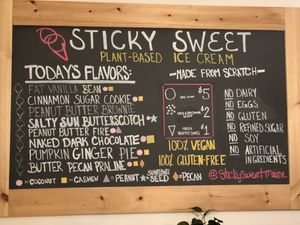 STICKY SWEET
PLANT-BASED ICE CREAM
TODAY'S FLAVORS:
-MADE FROM SCRATCH-
FAT VANILLA BEAN
CINNAMON SUGAR COOKIE
PEANUT BUTTER BROWNIE
SALTY SUN BUTTERSCOTCH
PEANUT BUTTER FIRE
NAKED DARK CHOCOLATE
PUMPKIN GINGER PIE
BUTTER PECAN PRALINE
=COCONUT =CASHEW =PEANUT =SUNFLOWER SEED =PECAN
$5
$2
$1
100% VEGAN
100% GLUTEN-FREE
NO DAIRY
NO EGGS
NO GLUTEN
NO REFINED SUGAR
NO SOY
NO ARTIFICIAL INGREDIENTS
@stickysweetmaine